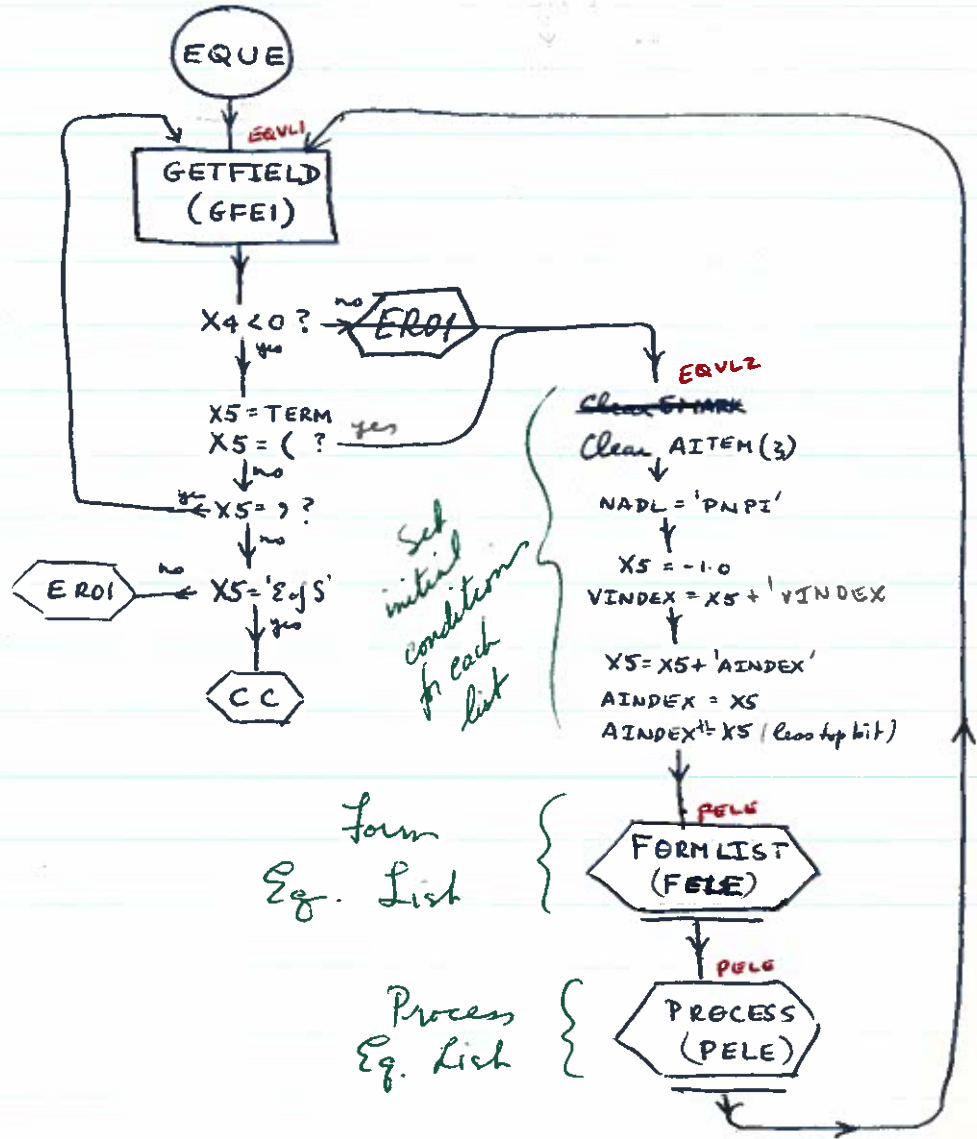 EQUE
EQVL1
GETFIELD
(GFE1)
X4<0 ?
no
ER01
yes
X5 = TERM
X5 = ( ?
yes
no
X5 = , ?
yes
no
X5 = 'EofS'
no
ER01
yes
CC
EQVL2
Clear EMARK
Clear AITEM(3)
NADL = 'PNPI'
X5 = -1.0
VINDEX = X5 + 'VINDEX
X5 = X5 + 'AINDEX'
AINDEX = X5
X5 (less top bit)
Set
initial
condition
for each
list
FELE
FORMLIST
(FELE)
Form
Eq. List
PELE
PROCESS
(PELE)
Process
Eq. List